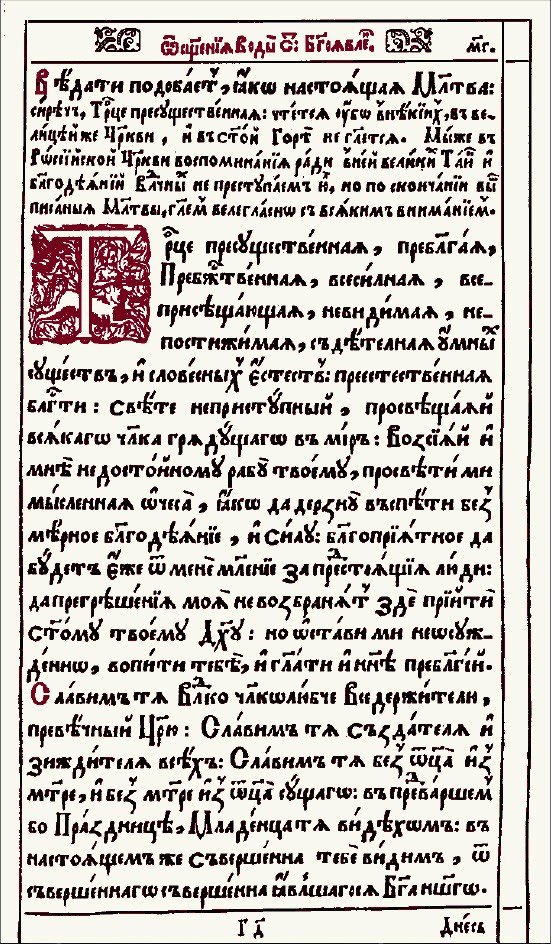 Ѡсщ҃енїѧ Воды̀ ст҃: Бг҃оѧвле́. мг.
Вѣ́дати подоба́етъ, ꙗ҆́кѡ настоѧ́щаѧ Мл҃тва:
си́рѣчъ, Тр҃це пресу́щественнаѧ: чте́тсѧ ᲂу҆́бѡ внѣ́кїихъ, въ ве-
ли́цѣй же Цр҃кви, и҆ въ ст҃о́й Горѣ̀ не гл҃етсѧ. Мы́же въ
Рѡссі́йской Цр҃кви воспомина́нїѧ ра́ди вне́й вели́киⷯ Та́инъ и҆
бл҃годѣѧ́нїй Влⷣчныⷯ не преступа́емъ ю҆̀, но по сконча́нїи вы́ше
пи́саныѧ Мл҃твы, гл҃емъ велегла́снѡ съ всѧ́кимъ внима́нїемъ.
Тр҃це пресу́щественнаѧ, пребл҃га́ѧ,
Пребж҃е́ственнаѧ, всеси́лнаѧ, все-
присѣща́ющаѧ, неви́димаѧ, не-
постижи́маѧ, съдѣ́телнаѧ ᲂу҆́мныⷯ
су́ществъ, и҆ слове́сныхъ є҆сте́ствъ: преесте́ственнаѧ
бл҃гти: Свѣ́те непристу́пный, просвѣща́ѧй
всѧ́кагѡ чл҃ка грѧду́щагѡ въ мі́ръ: Возсїѧ́й и҆
мнѣ̀ недосто́йному рабу̀ твоему̀, просвѣти́ ми
мы́сленнаѧ ѻ҆чеса̀, ꙗ҆́кѡ да дерзну̀ въспѣ́ти без̾
мѣ́рное бл҃годѣѧ́нїе, и҆ Си́лу: бл҃гопрїѧ́тное да
бу́детъ є҆́же ѿ менѐ мл҃е́нїе за предстоѧ́щїѧ лю́ди:
да прегрѣше́нїѧ моѧ̀ не возбранѧ́тъ здѣ̀ прїитѝ
Ст҃о́му твоему̀ Дх҃у: но ѡ҆ста́ви ми неѡсуж-
де́ннѡ, вопи́ти тебѣ̀, и҆ гл҃ати и҆ нн҃ѣ пребл҃гі́й.
Сла́вимъ тѧ Влⷣко чл҃колю́бче Вседержи́тели,
превѣ́чный Цр҃ю: Сла́вимъ тѧ Създа́телѧ и҆
Зижди́телѧ всѣ́хъ: Сла́вимъ тѧ без̾ ѻ҆ц҃а̀ и҆з̾
мт҃ре, и҆ без̾ мт҃ре и҆з̾ ѻ҆ц҃а̀ су́щагѡ: въ предва́ршем
бо Пра́здницѣ, Младе́нца тѧ ви́дѣхомъ: въ
настоѧ́щемъ же Съверше́нна тебѐ ви́димъ, ѿ
съверше́ннагѡ съверше́нна ꙗ҆́вльшагосѧ Бг҃а на́шегѡ.
Г д҃ Дне́сь